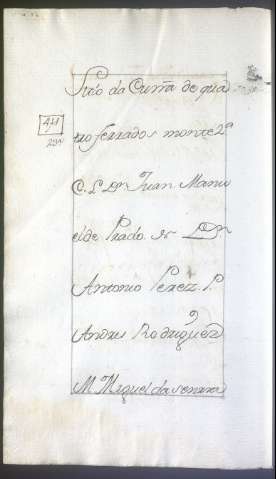 Sitio da Currâ de qua
tro ferrados monte 2ª
C. L Dn Juan Manu
el de Prado N Dn
Antonio Perez P.
Andres Rodriguez
M Miguel da senrra